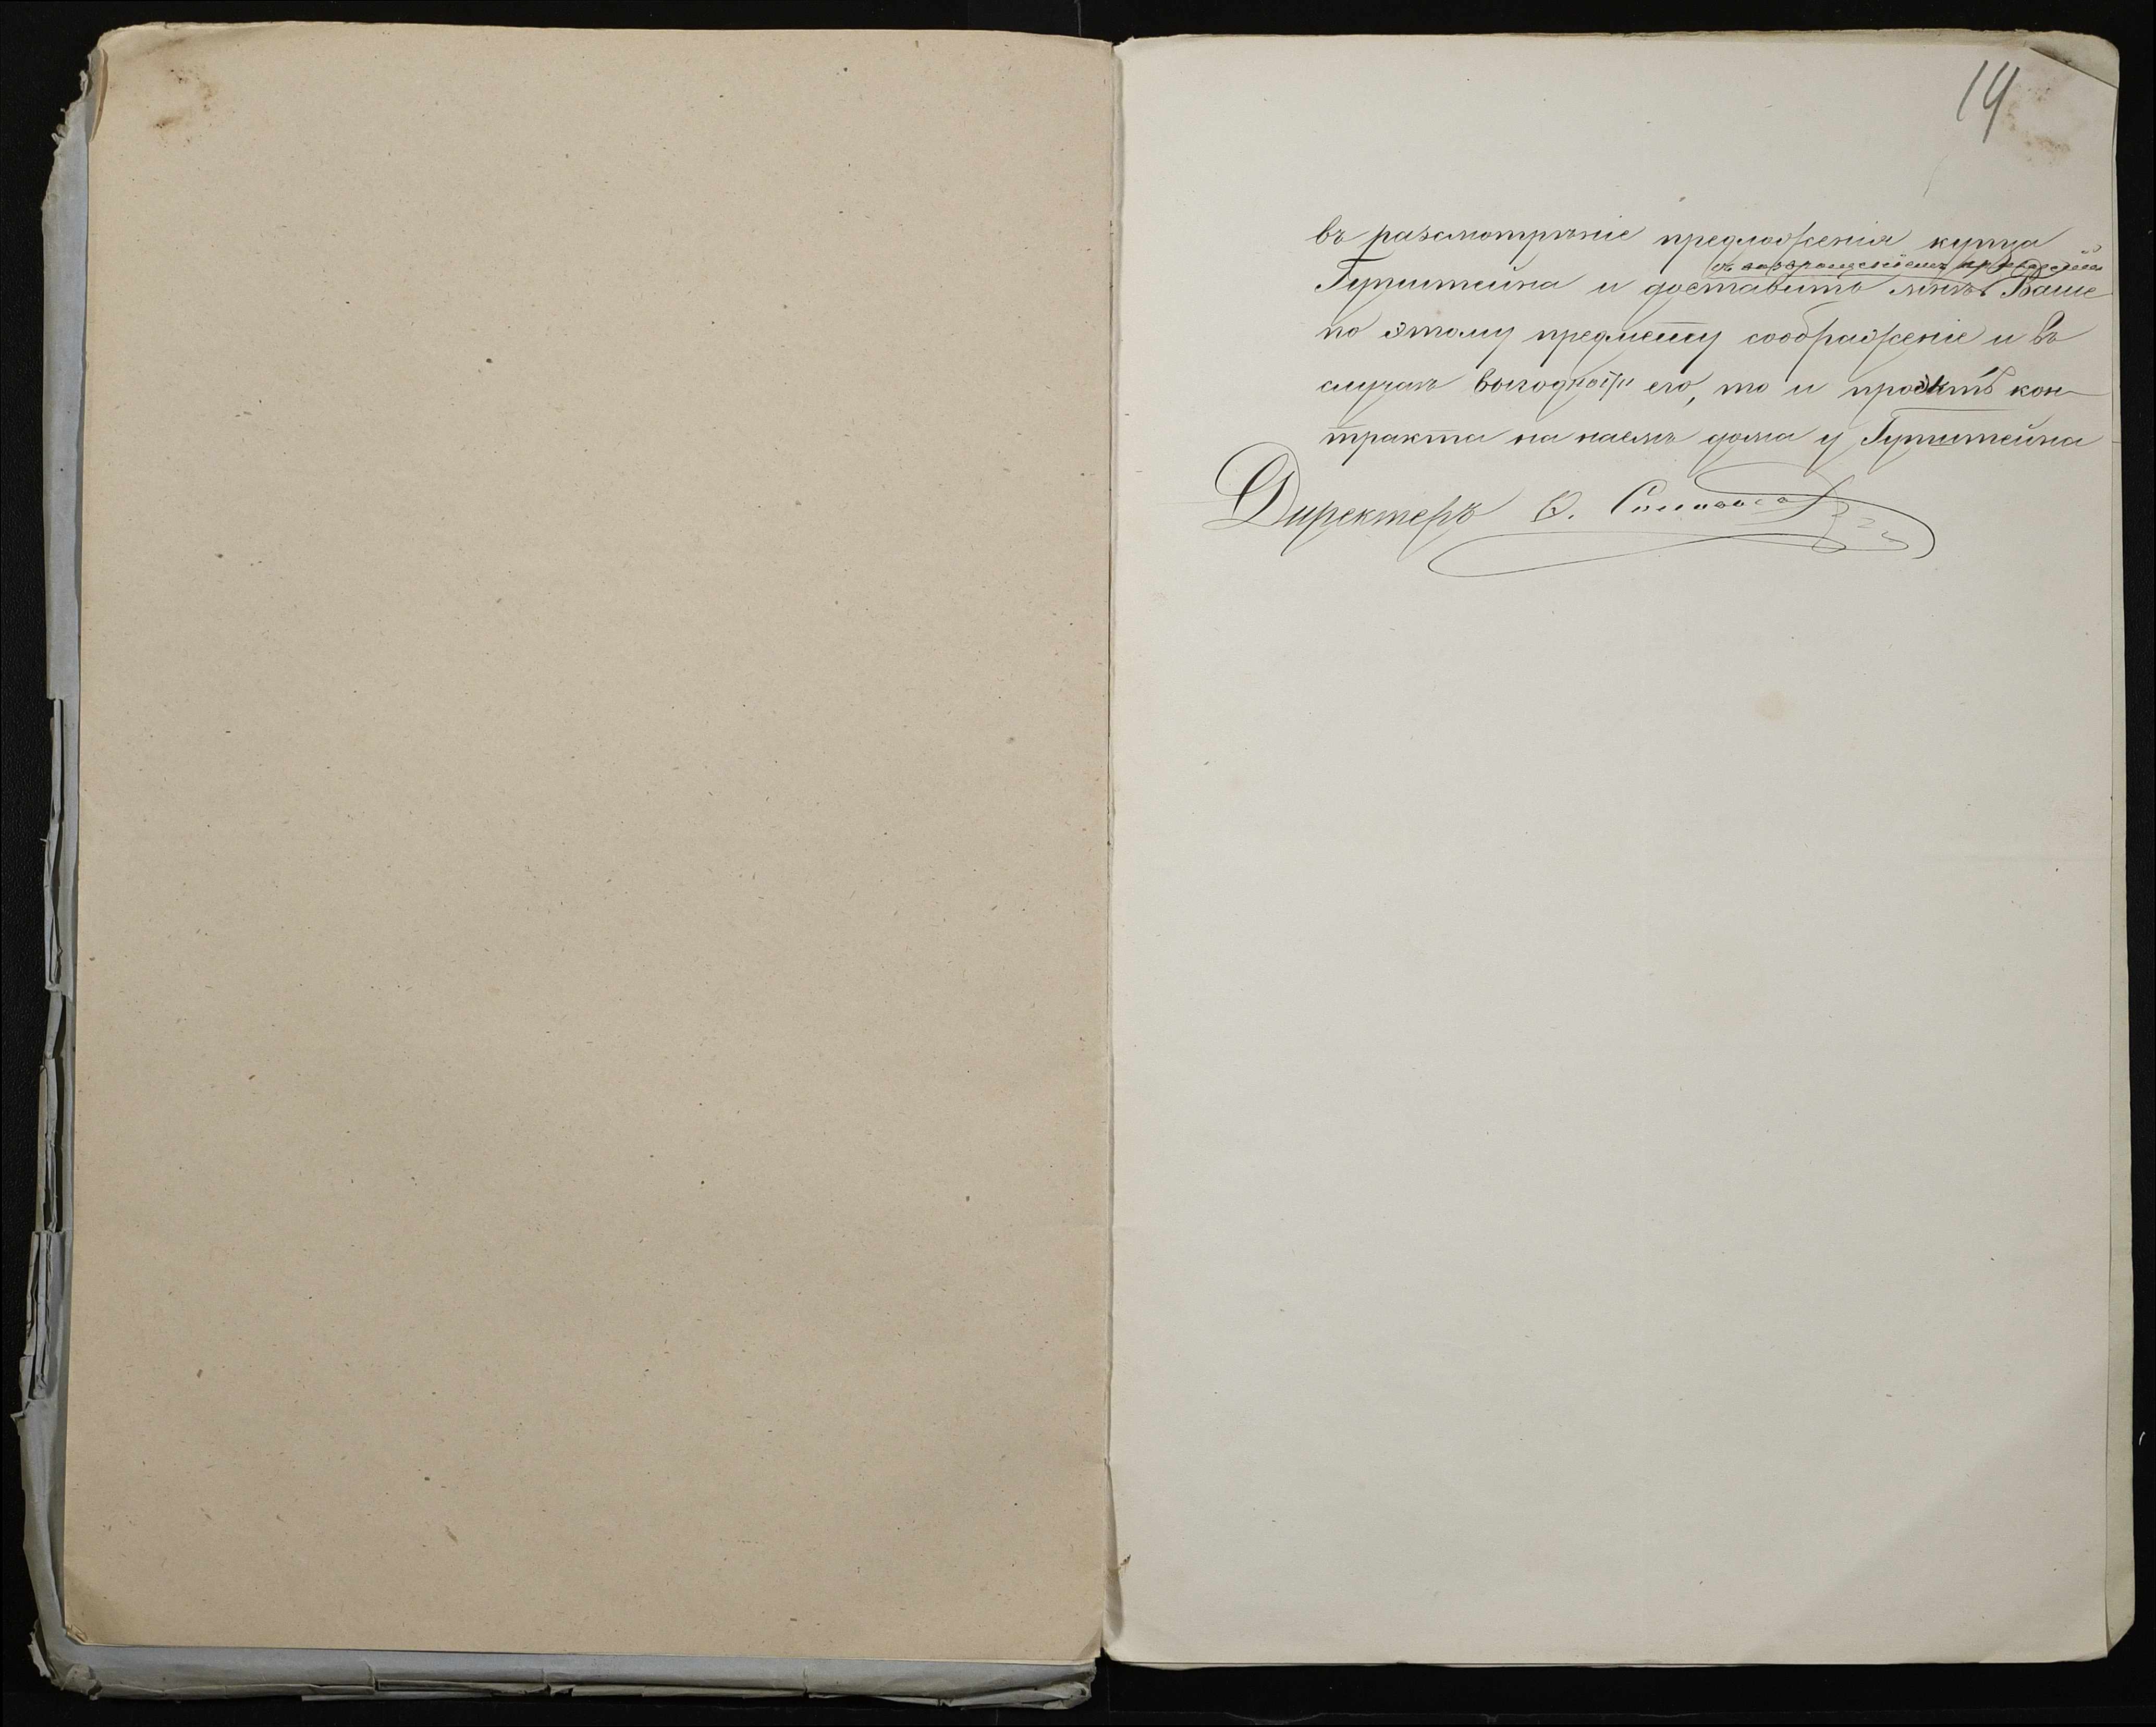 14
въ разсмотрѣніе предложенія купца
съ возвращеніемъ приложенія
Гутштейна и доставить мнѣ Ваше
по этому предмету соображеніе и въ
случаѣ выгодности его, то и проэктъ кон-
тракта на наемъ дома у Гутштейна
Директоръ